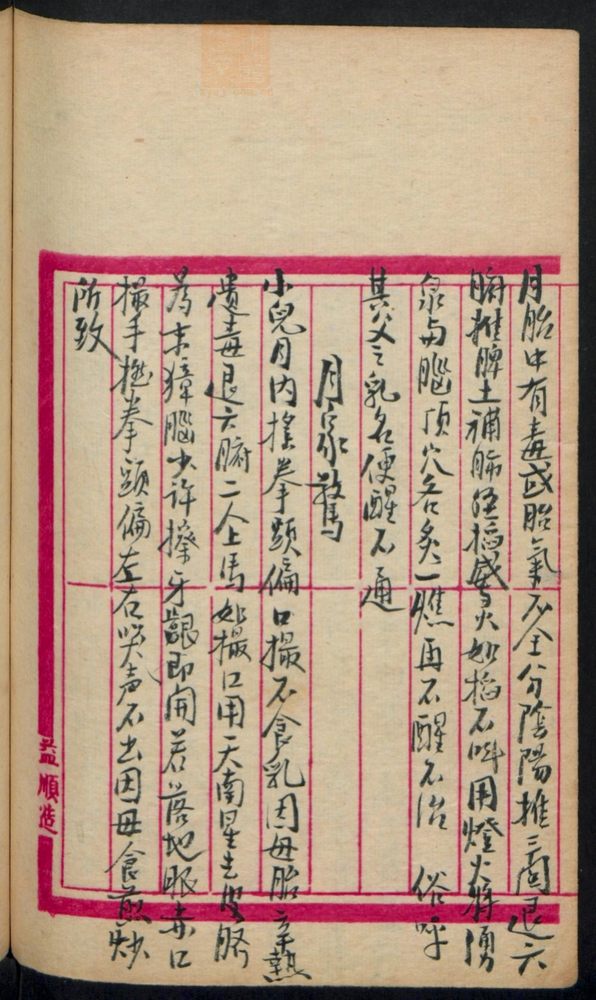 月胎中有毒或胎氣不全分陰陽推三関退六
腑推脾土補肺經掐威灵火如掐不呌用燈火将湧
泉与腦頂穴各炙一燋再不醒不治 俗呼
其父之乳名便醒不通
月家驚
小兒月内揸拳頭偏口撮不食乳因母胎辛熱
遺毒退六腑二人上馬如撮口用天南星去皮臍
為末獐腦少許擦牙齦即開若落地眼赤口
撮手揸拳頭偏左右哭声不出因母食煎炒
所致
益順造